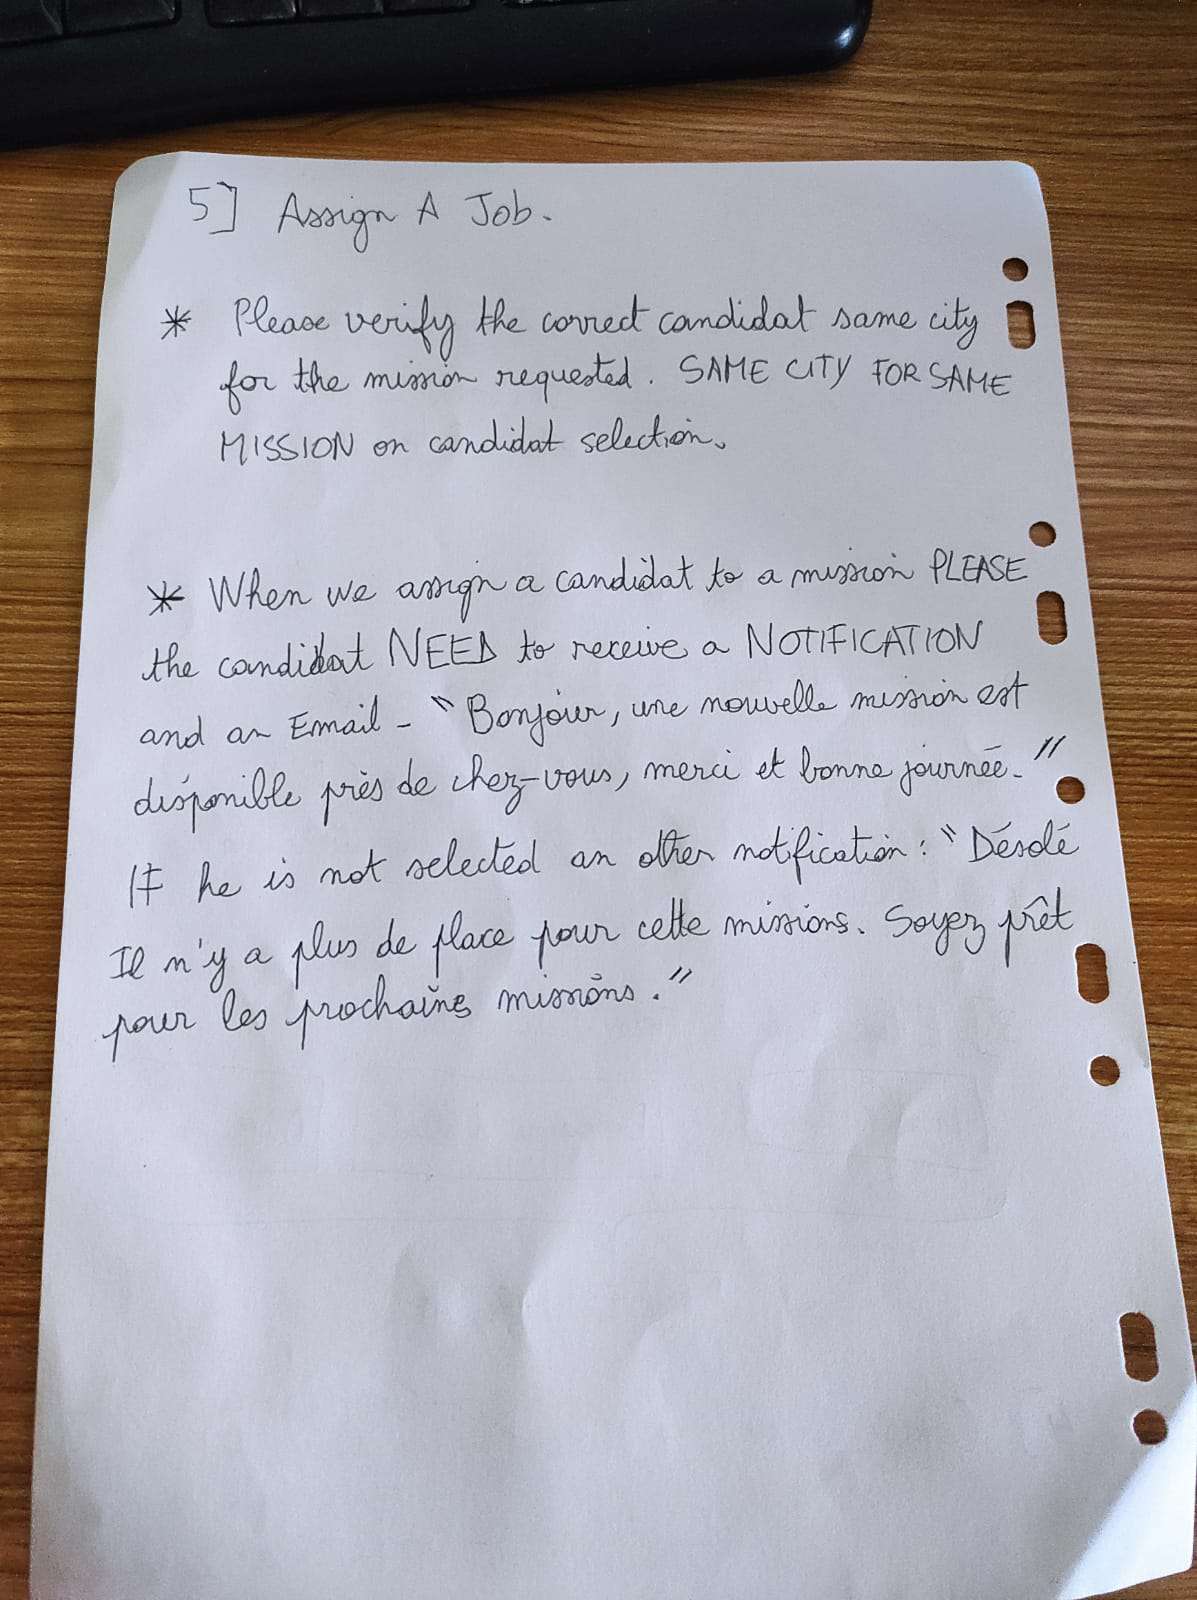 5] Assign A Job.
* Please verify the correct candidat same city
for the mission requested. SAME CITY FOR SAME
MISSION on candidat selection.
* When we assign a candidat to a mission PLEASE
the candidat NEED to receive a NOTIFICATION
and an Email - "Bonjour, une nouvelle mission est
disponible près de chez-vous, merci et bonne journée."
If he is not selected an other notification : "Désolé
Il n'y a plus de place pour cette missions. Soyez prêt
pour les prochaines missions."